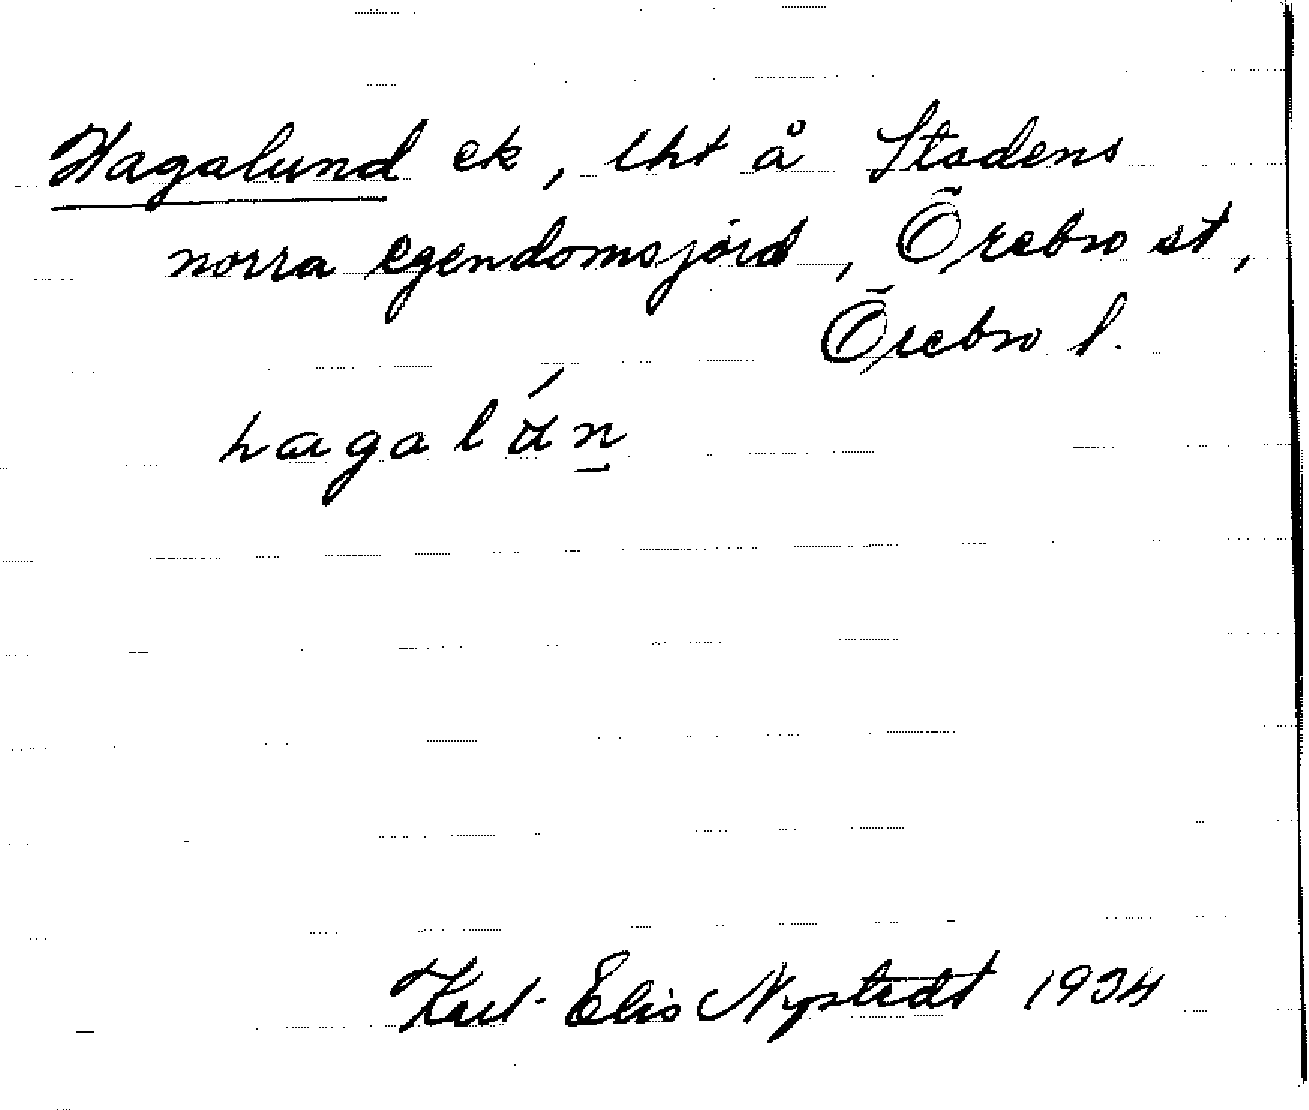 Hagalund ek, lht å Stadens
norra egendomsjord, Örebro st,
Örebro l.
hagalún
Karl-Elis Nystedt 1934